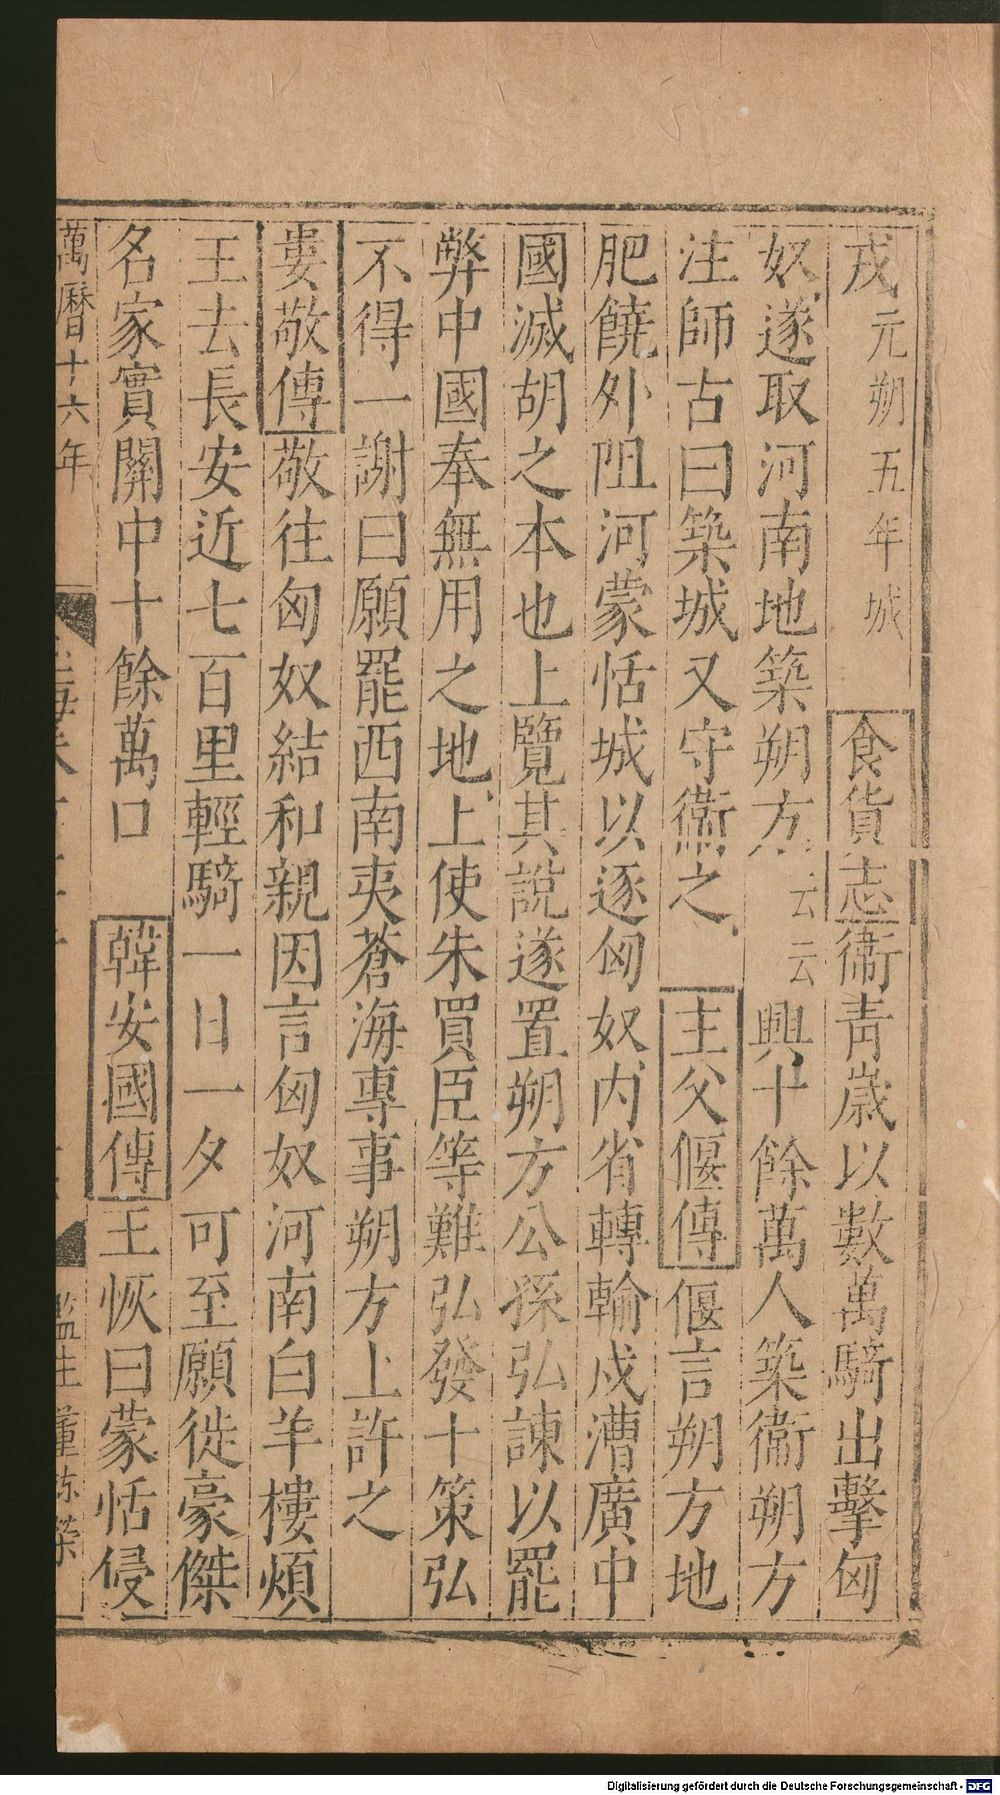 戎元朔五年城 食貨志衞青歲以數萬騎出擊匈
奴遂取河南地築朔方云云興十餘萬人築衞朔方
注師古曰築城又守衞之 主父偃傳偃言朔方地
肥饒外阻河蒙恬城以逐匈奴内省轉輸戍漕廣中
國滅胡之本也上覽其說遂置朔方公孫弘諫以罷
弊中國奉無用之地上使朱買臣等難弘發十策弘
不得一謝曰願罷西南夷蒼海專事朔方上許之
婁敬傳敬往匈奴結和親因言匈奴河南白羊樓煩
王去長安近七百里輕騎一日一夕可至願徙豪傑
名家實關中十餘萬口 韓安國傳王恢曰蒙恬侵
萬曆十六年 監生董
Digitalisierung gefördert durch die Deutsche Forschungsgemeinschaft - DFG